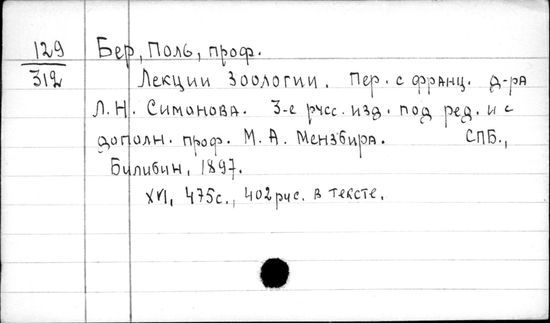 129
312
Бер, Поль, проф.
Лекции зоологии. Пер. с франц. д-ра
Л. Н. Симонова. 3-е русс. изд. под ред. и с
дополн. проф. М. А. Мензбира. СПБ.,
Билибин, 1897.
XVI, 475 с., 402 рис. в тексте.